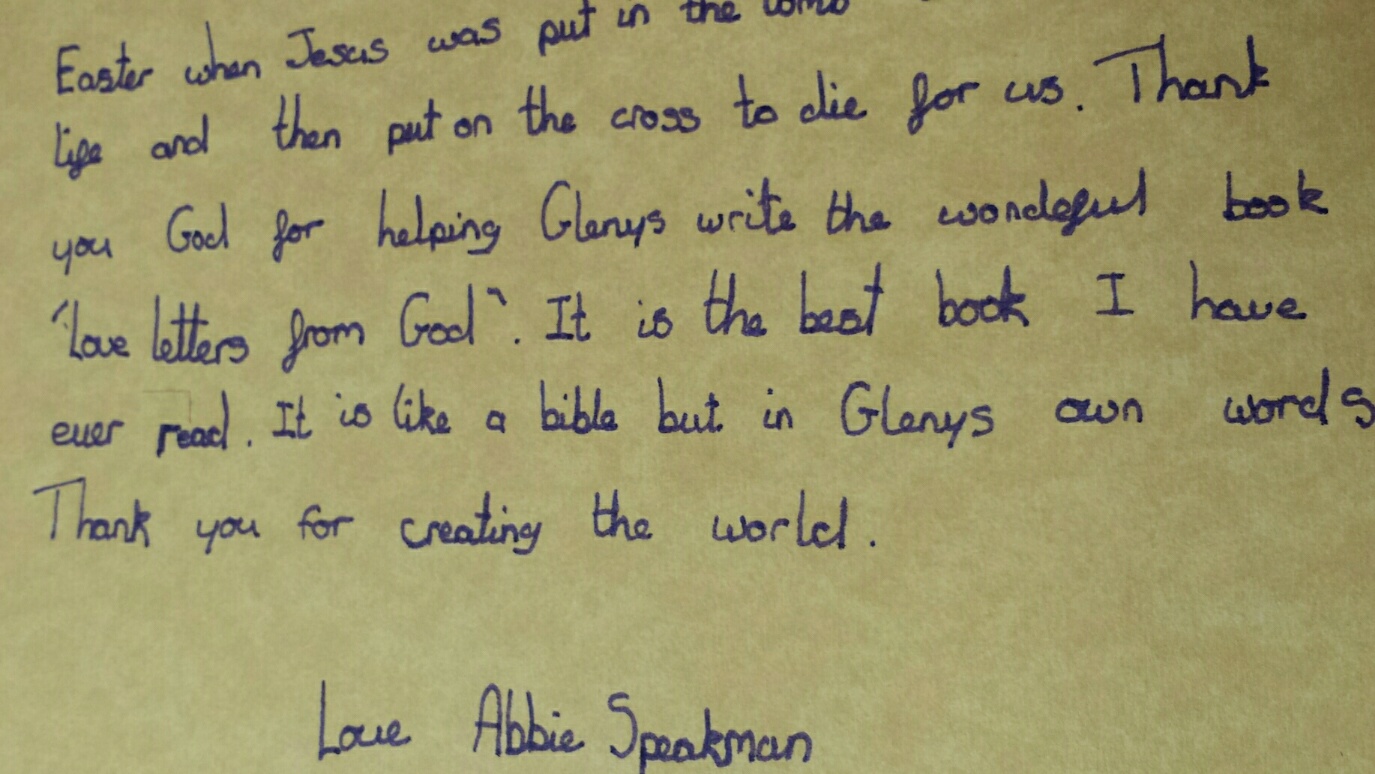 Easter when Jesus was put in the tomb
life and then put on the cross to die for us. Thank
you God for helping Glenys write the wondeful book
"love letters from God". It is the best book I have
ever read. It is like a bible but in Glenys own words
Thank you for creating the world.
Love Abbie Speakman